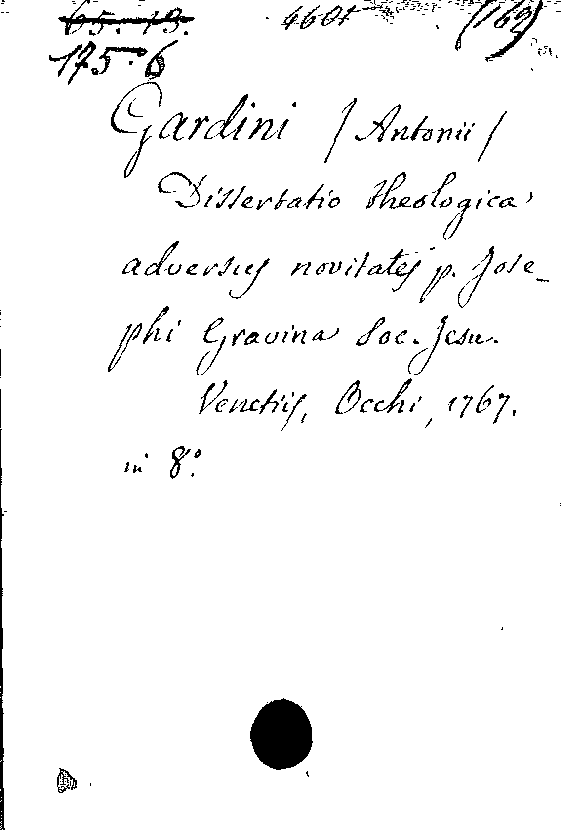 65. 13. 4601 (162)
175. 6
Gardini / Antonii /
Dissertatio theologica
adversus novitates p. Jose_
phi Gravina Soc. Jesu.
Venetiis, Occhi, 1767.
in 8º.